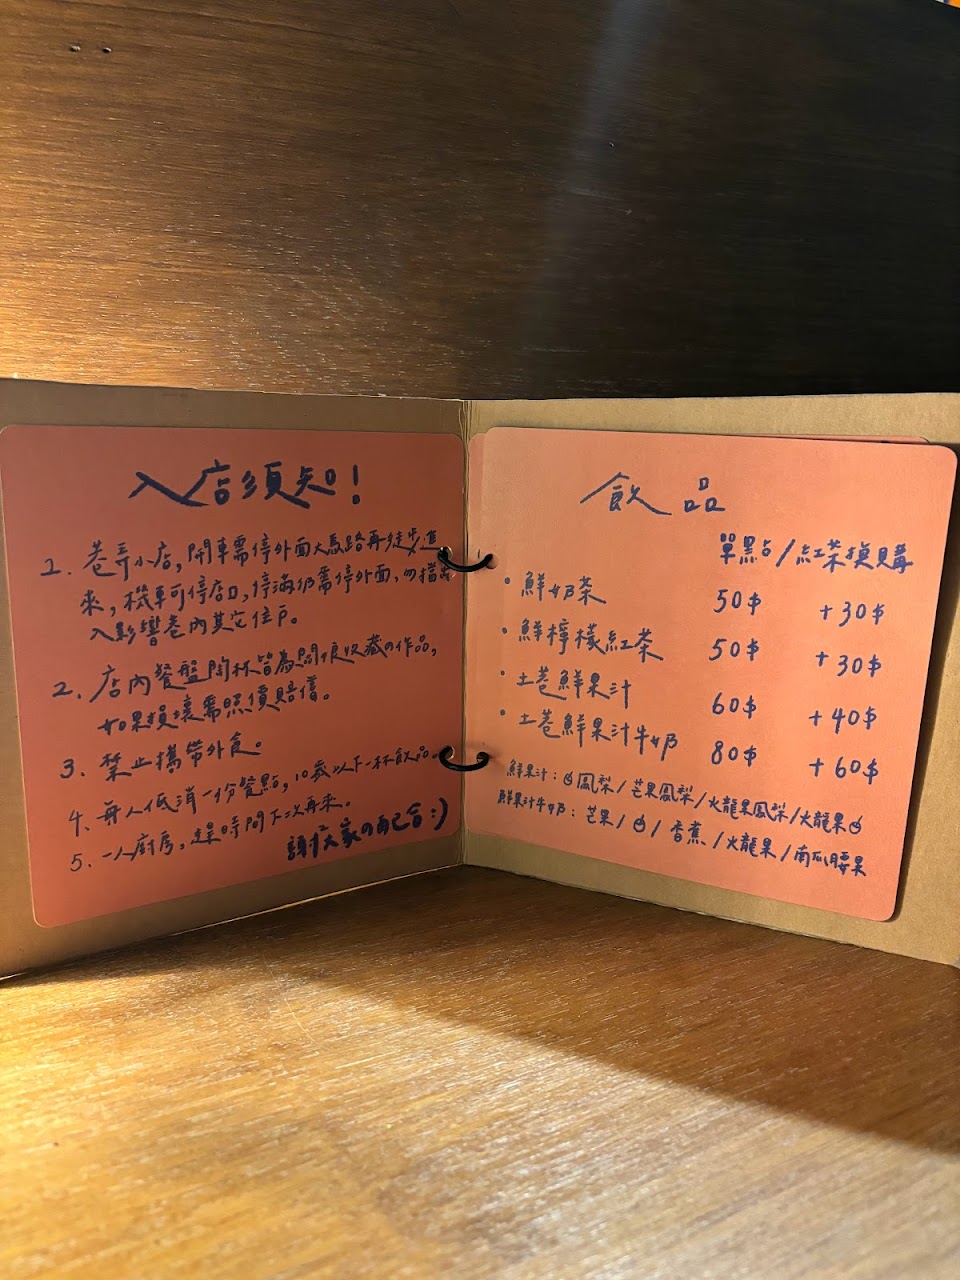 入店須知!
1. 巷弄小店,開車需停外面大馬路再徒步進
來,機車可停店口,停滿仍需停外面,勿擋出
入影響巷內其它住戶。
2. 店內餐盤陶杯皆為闆娘收藏の作品,
如果損壞需照價賠償。
3. 禁止攜帶外食。
4. 每人低消一份餐點,10歲以下一杯飲品。
5. 一人廚房,趕時間下次再來。
謝大家の配合:)
飲品
單點/紅茶換購
• 鮮奶茶 50$ +30$
• 鮮檸檬紅茶 50$ +30$
• 土巷鮮果汁 60$ +40$
• 土巷鮮果汁牛奶 80$ +60$
鮮果汁:鳳梨/芒果鳳梨/火龍果鳳梨/火龍果
鮮果汁牛奶:芒果/香蕉/火龍果/南瓜腰果